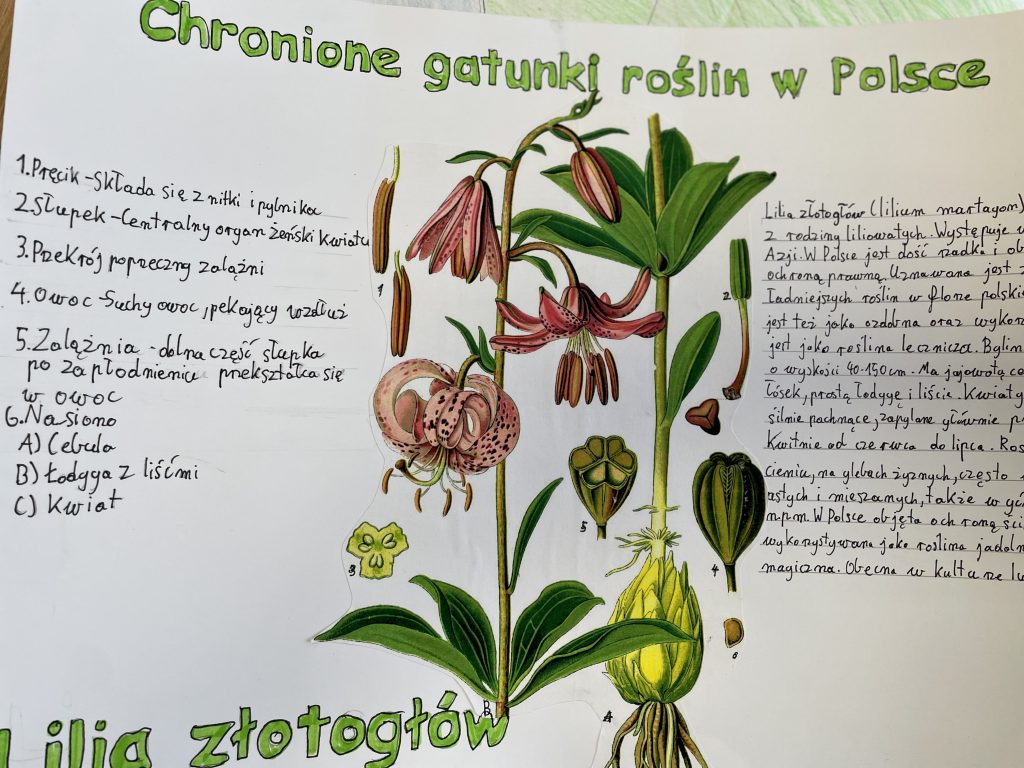 Chronione gatunki roślin w Polsce
1.Pręcik-Składa się z nitki i pylnika
2.Słupek-Centralny organ żeński kwiatu
3.Przekrój poprzeczny zalążni
4.Owoc-Suchy owoc, pękający wzdłuż
5.Zalążnia -dolna część słupka
po zapłodnieniu przekształca się
w owoc
6.Nasiono
A) Cebula
B) Łodyga z liśćmi
C) Kwiat
1
2
3
4
5
6
A
B
Lilia złotogłów (lilium martagon)
z rodziny liliowatych. Występuje w
Azji. W Polsce jest dość rzadka i ob
ochroną prawną. Uznawana jest z
ładniejszych roślin w florze polskie
jest też jako ozdobna oraz wykorz
jest jako roślina lecznicza. Bylin
o wyskości 40-150cm. Ma jajowatą ce
łósek, prostą łodygę i liście. Kwiaty
silnie pachnące, zapylane głównie p
Kwitnie od czerwca do lipca. Ros
cieniu, na glebach żyznych, często
astych i mieszanych, także w gó
n.p.m. W Polsce objęta ochroną ści
wykorzystywana jako roślina jadaln
magiczna. Obecna w kulturze lu
Lilia złotogłów